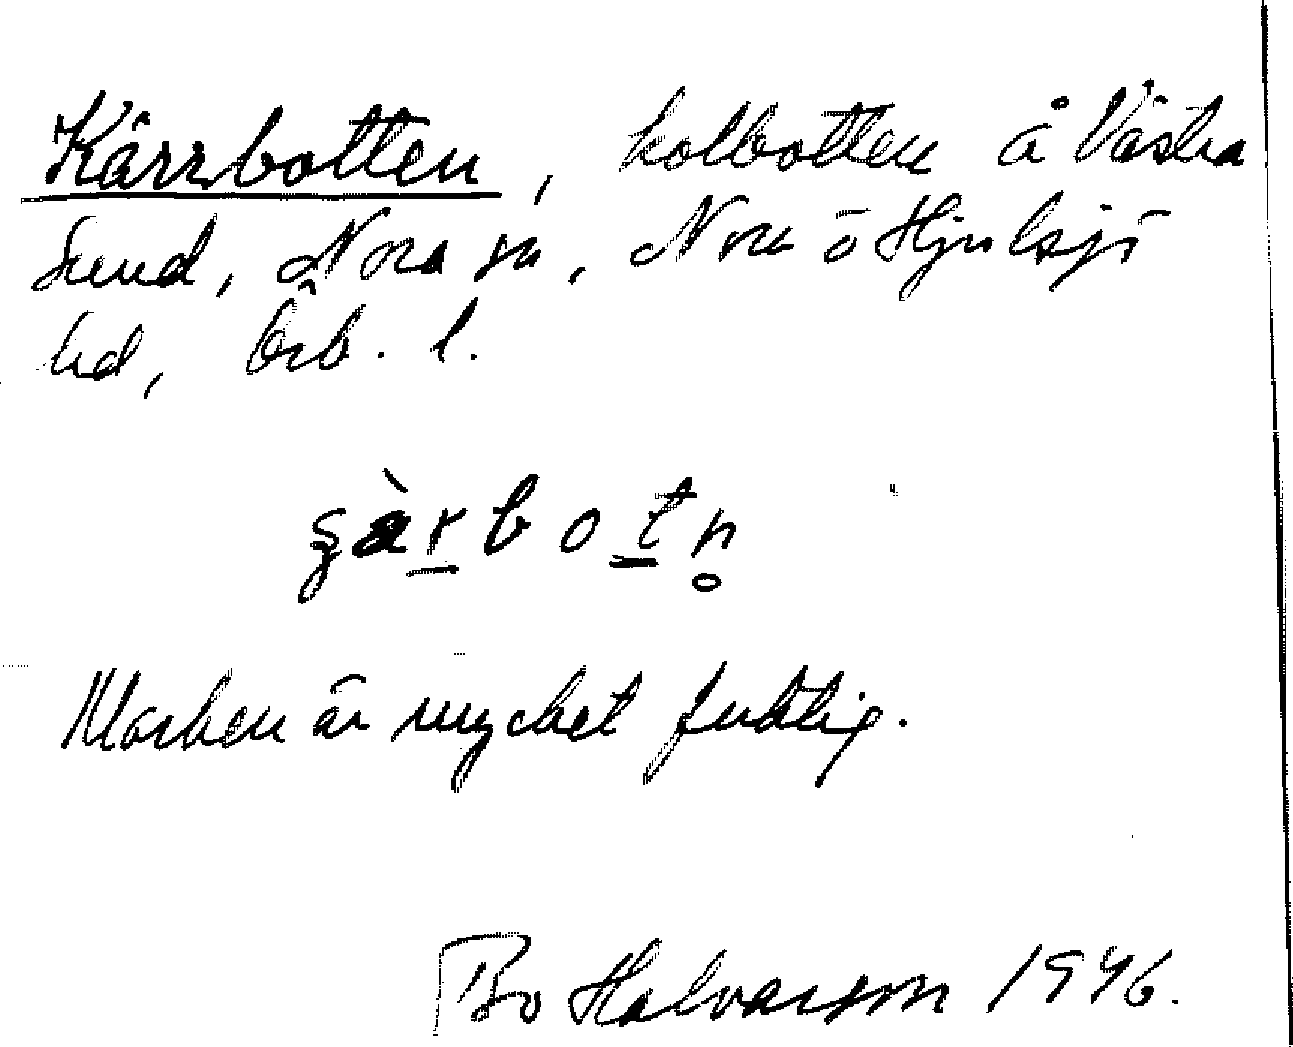 Kärrbotten, kolbotten å Västra
Sund, Nora sn, Nora o Hjulsjö
hd, Örb. l.
ʂàr̲bot̲n̥
Marken är mycket fuktig.
Bo Halvarson 1946.